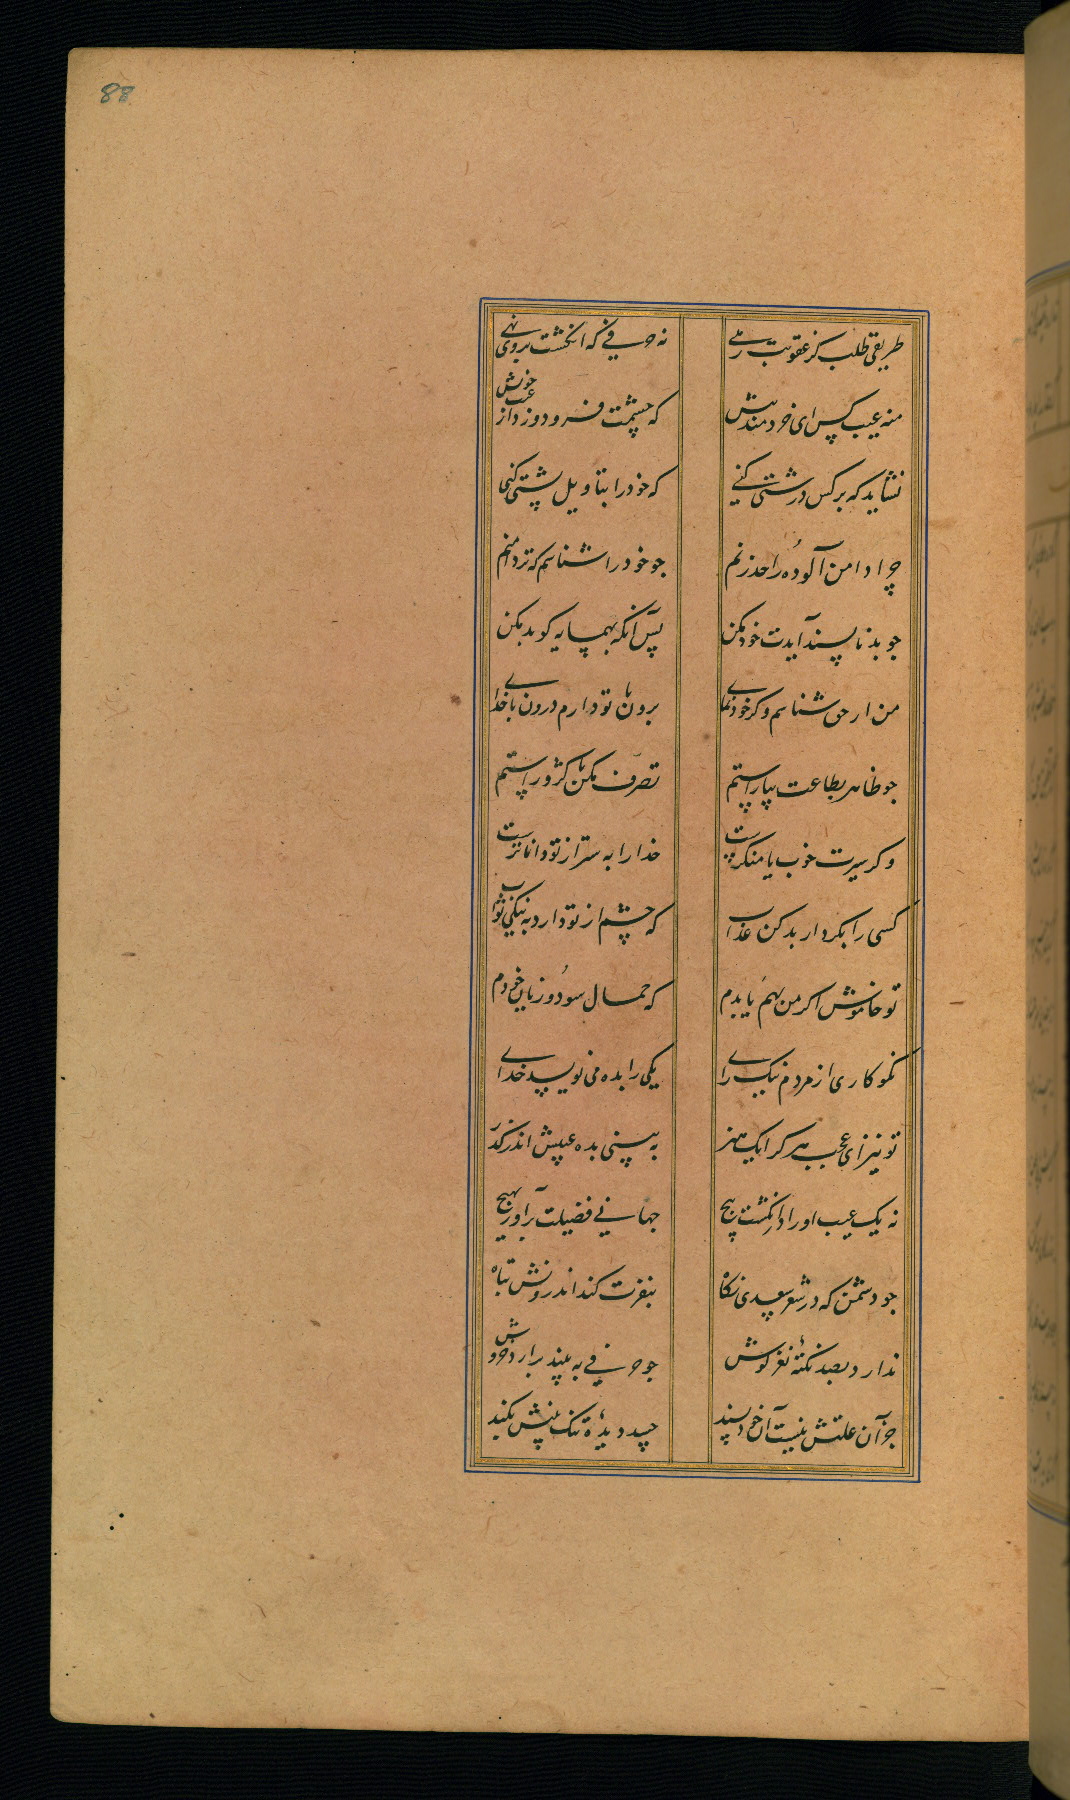 88
طریقی طلب کز عقوبت رهی
نه حرفی که انکشت بروی نهی
منه عیب کس ای خردمند پیش
که چشمت فرو دوزد از عیب خویش
نشاید که بر کس درشتی کنی
که خود را بتاویل پشتی کنی
چرا دامن آلوده را حد زنم
جو خود را شناسم که تر دامنم
جو بد ناپسند آیدت خود مکن
پس آنکه بهمسایه کو بد مکن
من ار حق شناسم وکر خود نمای
برون با تو دارم درون با خدای
جو ظاهر بطاعت بیاراستم
تصرف مکن با کژ و راستم
وکر سیرتم خوب یا منکرست
خدا را به سر از تو داناترست
کسی را بکردار بد کن عذاب
که چشم از تو دارد به نیکی ثواب
تو خاموش اکر من بهم یا بدم
که حمال سود و زیان خودم
نکو کاری از مردم نیک رای
یکی را بده می نویسد خدای
تو نیز ای عجب هر کرا یک هنر
به بینی بده عیبش اندر کذر
نه یک عیب او را در انکشت پیچ
جهانی فضیلت برآور بهیچ
جو دشمن که در شعر سعدی نکاه
بنفرت کند اندرونش تباه
ندارد بصد نکتهٔ نغز کوش
جو حرفی به بیند برارد خروش
جز آن علتش نیست آن خودپسند
حسد دیدهٔ نیک بینش بکند